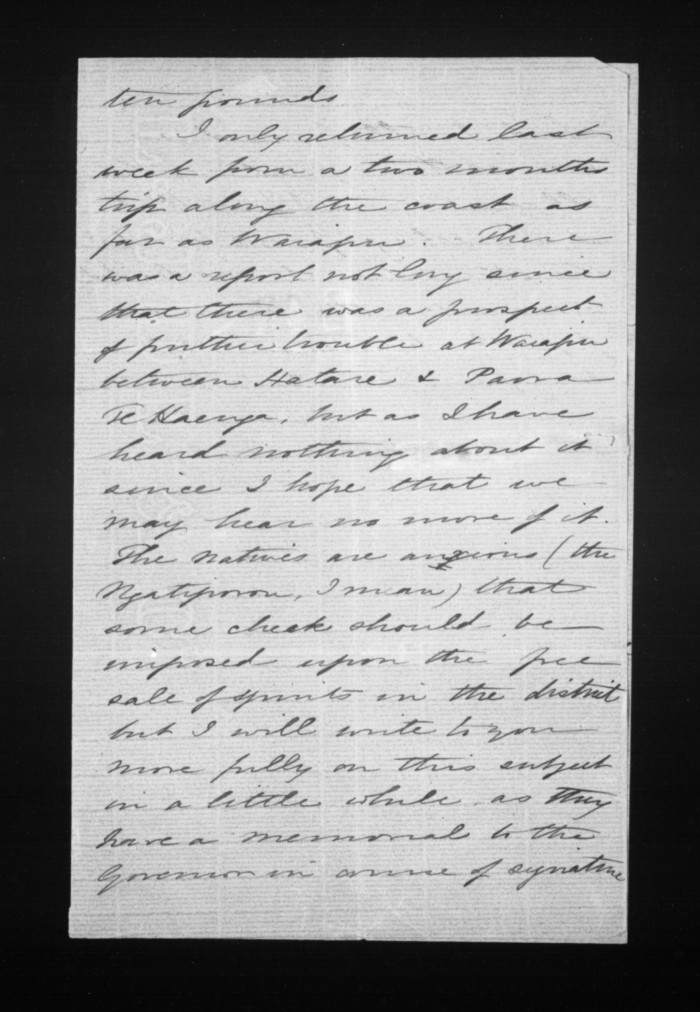 ten pounds
I only returned last
week from a two months
trip along the coast as
far as Waiapu. There
was a report not long since
that there was a prospect
of further trouble at Waiapu
between Hatare & Paora
Te Haenga, but as I have
heard nothing about it
since I hope that we
may hear no more of it.
The natives are anxious (the
Ngatiporou, I mean) that
some check should be
imposed upon the free
sale of spirits in the district
but I will write to you
more fully on this subject
in a little while as they
have a memorial to the
Governor in course of signature